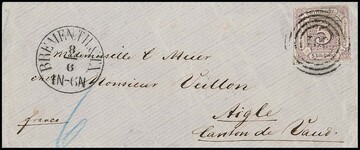 BREMEN TH. & TX
8
6
1N-6N
3
Mademoiselle L Meier
chez Monsieur Vuillon
Aigle
Canton de Vaud.
franco
6